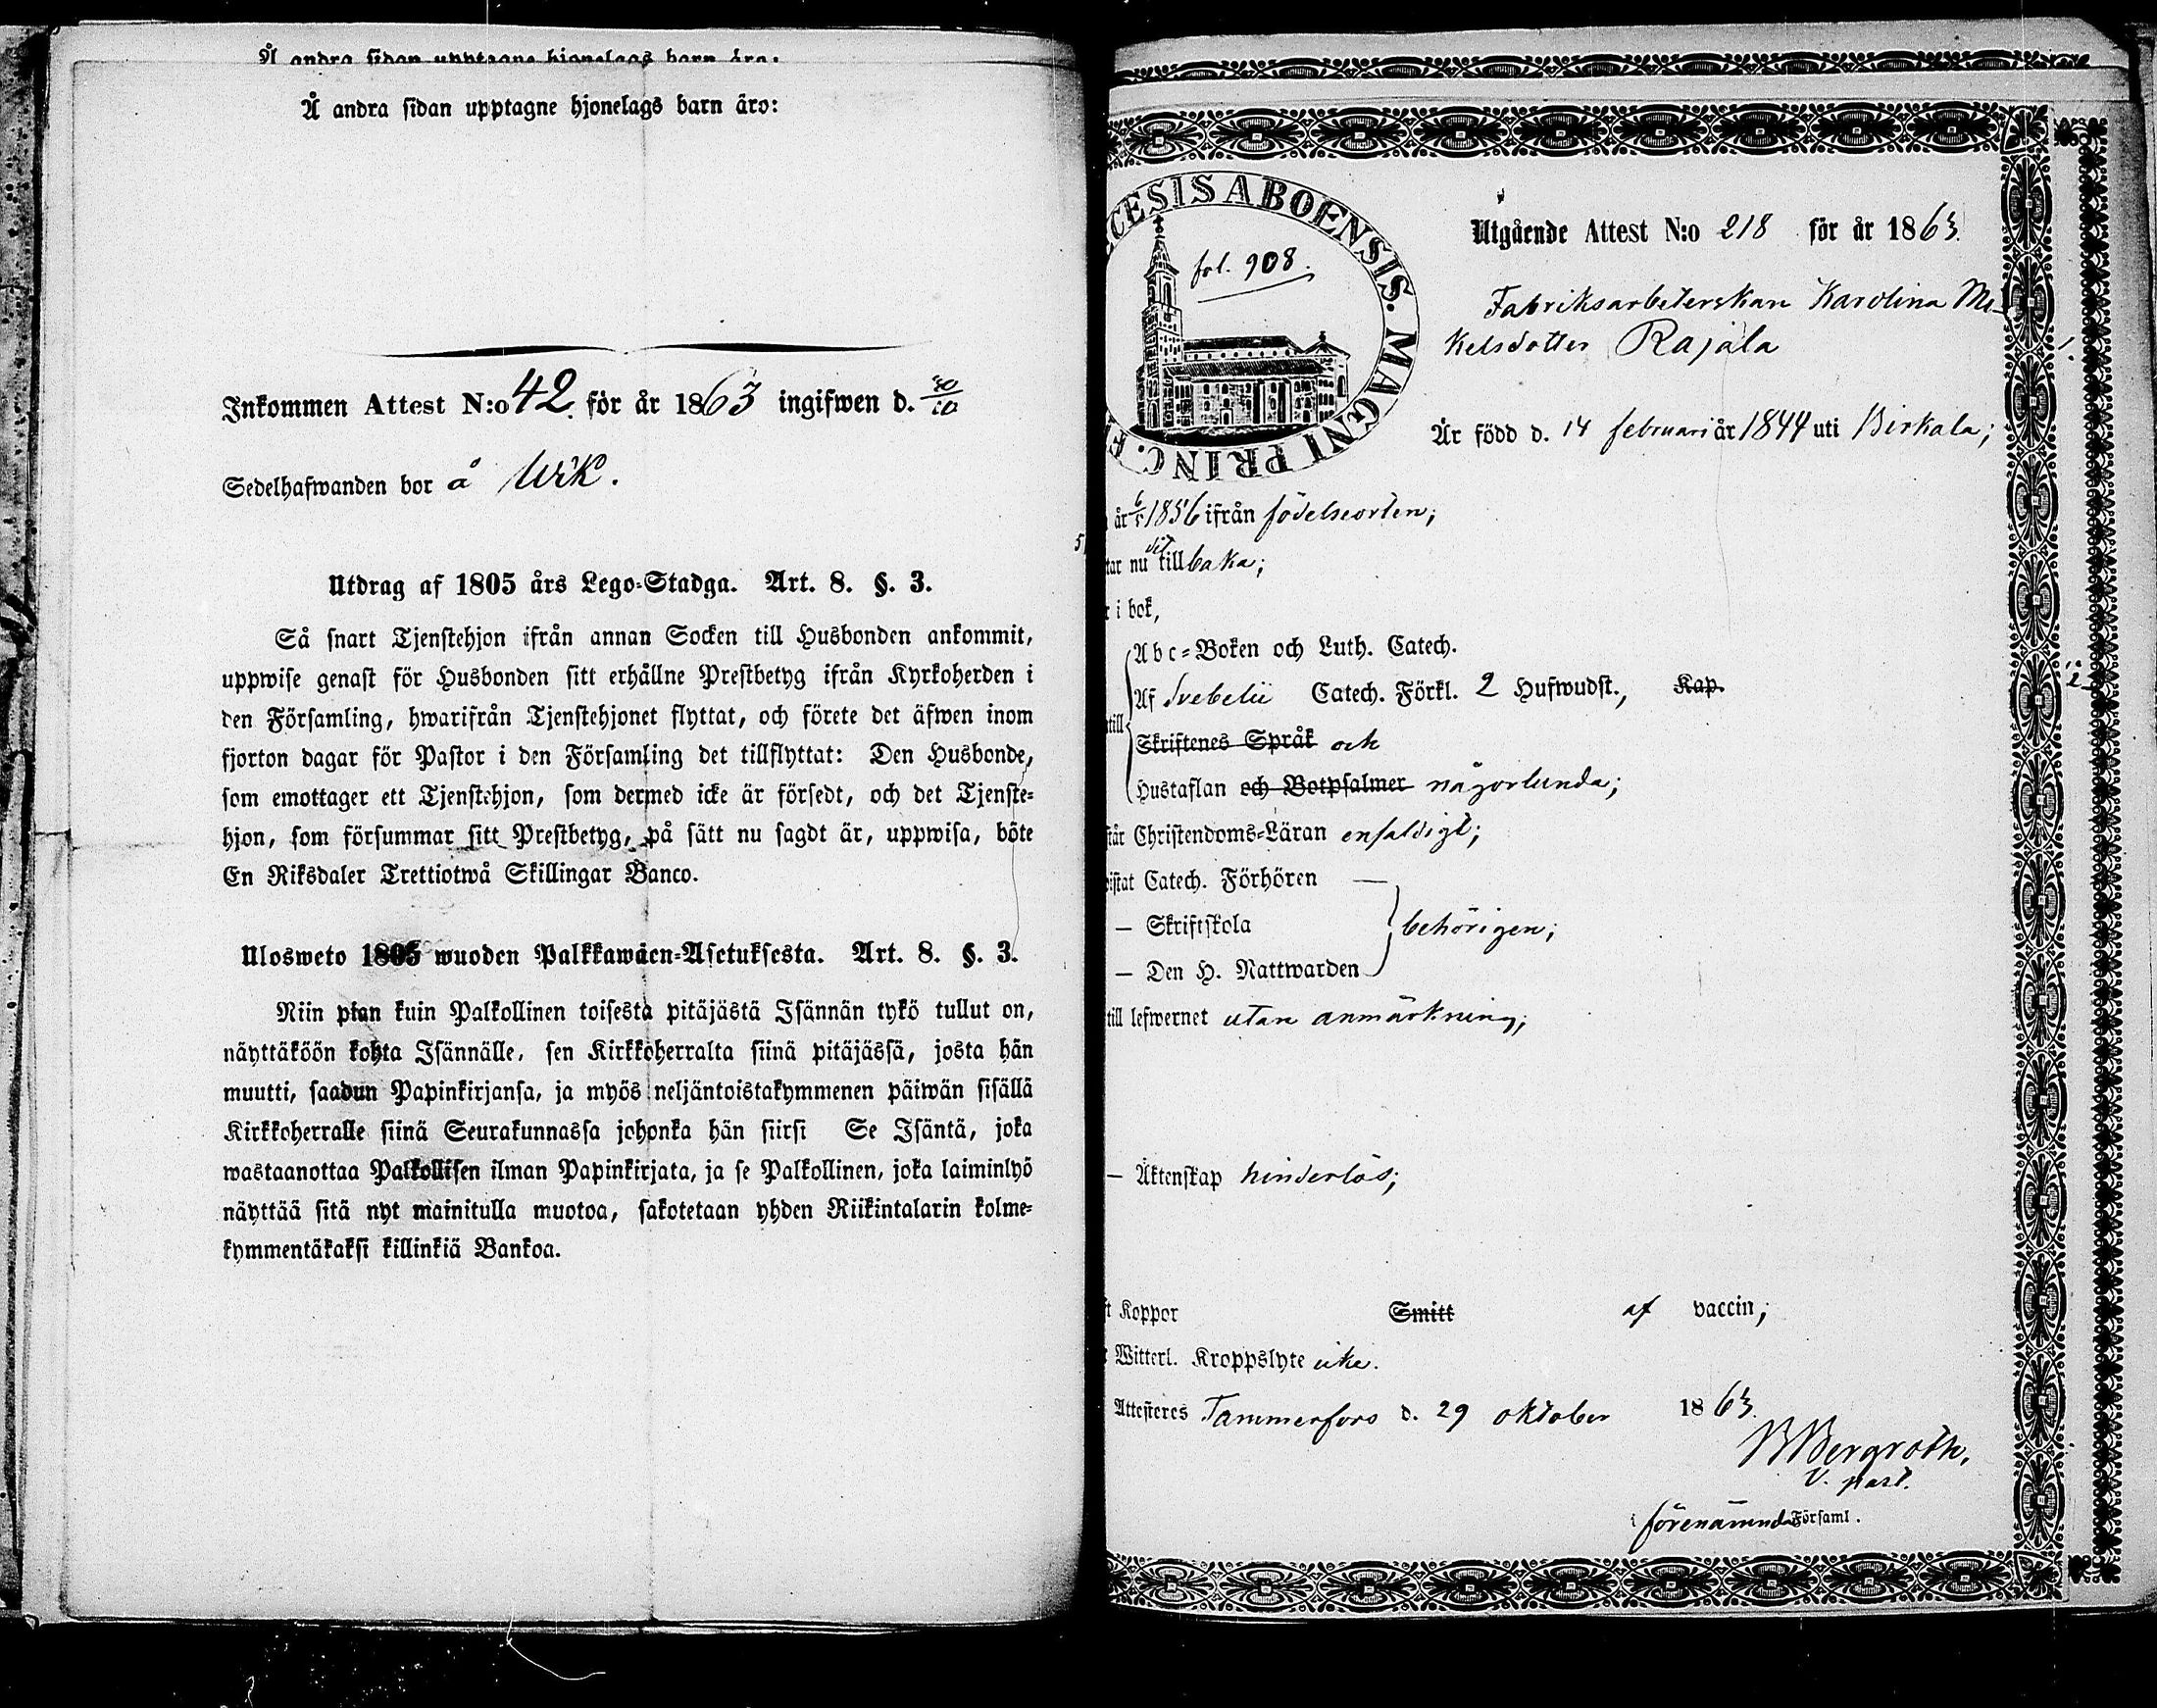 Å andra sidan upptagne hjonelags barn äro:
Å andra sidan upptagne hjonelags barn äro:
Inkommen Attest N:o 42. för år 1863 ingifwen d. 30/10
Sedelhafwanden bor å Wik.
Utdrag af 1805 års Lego-Stadga. Art. 8. §. 3.
Så snart Tjenstehjon ifrån annan Socken till Husbonden ankommit,
uppwise genast för Husbonden sitt erhållne Prestbetyg ifrån Kyrkoherden i
den Församling, hwarifrån Tjenstehjonet flyttat, och förete det äfwen inom
fjorton dagar för Pastor i den Församling det tillflyttat: Den Husbonde,
som emottager ett Tjenstehjon, som dermed icke är försedt, och det Tjenste-
hjon, som försummar sitt Prestbetyg, på sätt nu sagdt är, uppwisa, böte
En Riksdaler Trettiotwå Skillingar Banco.
Ulosweto 1805 wuoden Palkkawäen-Asetuksesta. Art. 8. §. 3.
Niin pian kuin Palkollinen toisesta pitäjästä Isännän tykö tullut on,
näyttäköön kohta Isännälle, sen Kirkkoherralta siinä pitäjässä, josta hän
muutti, saadun Papinkirjansa, ja myös neljäntoistakymmenen päiwän sisällä
Kirkkoherralle siinä Seurakunnassa johonka hän siirsi Se Isäntä, joka
wastaanottaa Palkollisen ilman Papinkirjata, ja se Palkollinen, joka laiminlyö
näyttää sitä nyt mainitulla muotoa, sakotetaan yhden Riikintalarin kolme-
kymmentäkaksi killinkiä Bankoa.
CESIS ABOENSIS. MAGNI PRINC. F
fol. 908.
Utgående Attest N:o 218 för år 1863.
Fabriksarbeterskan Karolina Mi-
kelsdotter Rajala
Är född d. 14 februari år 1844 uti Birkala;
år 6/5 1856 ifrån födelseorten;
tar nu dit tillbaka;
r i bok,
Abc-Boken och Luth. Catech.
Af Svebelii Catech. Förkl. 2 Hufwudst., Kap.
till
Skriftenes Språk och
Hustaflan och Botpsalmer någorlunda;
står Christendoms-Läran enfaldigt;
istat Catech. Förhören —
— Skriftskola behörigen;
— Den H. Nattwarden
till lefwernet utan anmärkning;
— Äktenskap hinderlös;
t Koppor Smitt af vaccin;
Witterl. Kroppslyte icke.
Attesteres Tammerfors d. 29 oktober 1863.
B Bergroth,
V. past.
i förenämnda Församl.